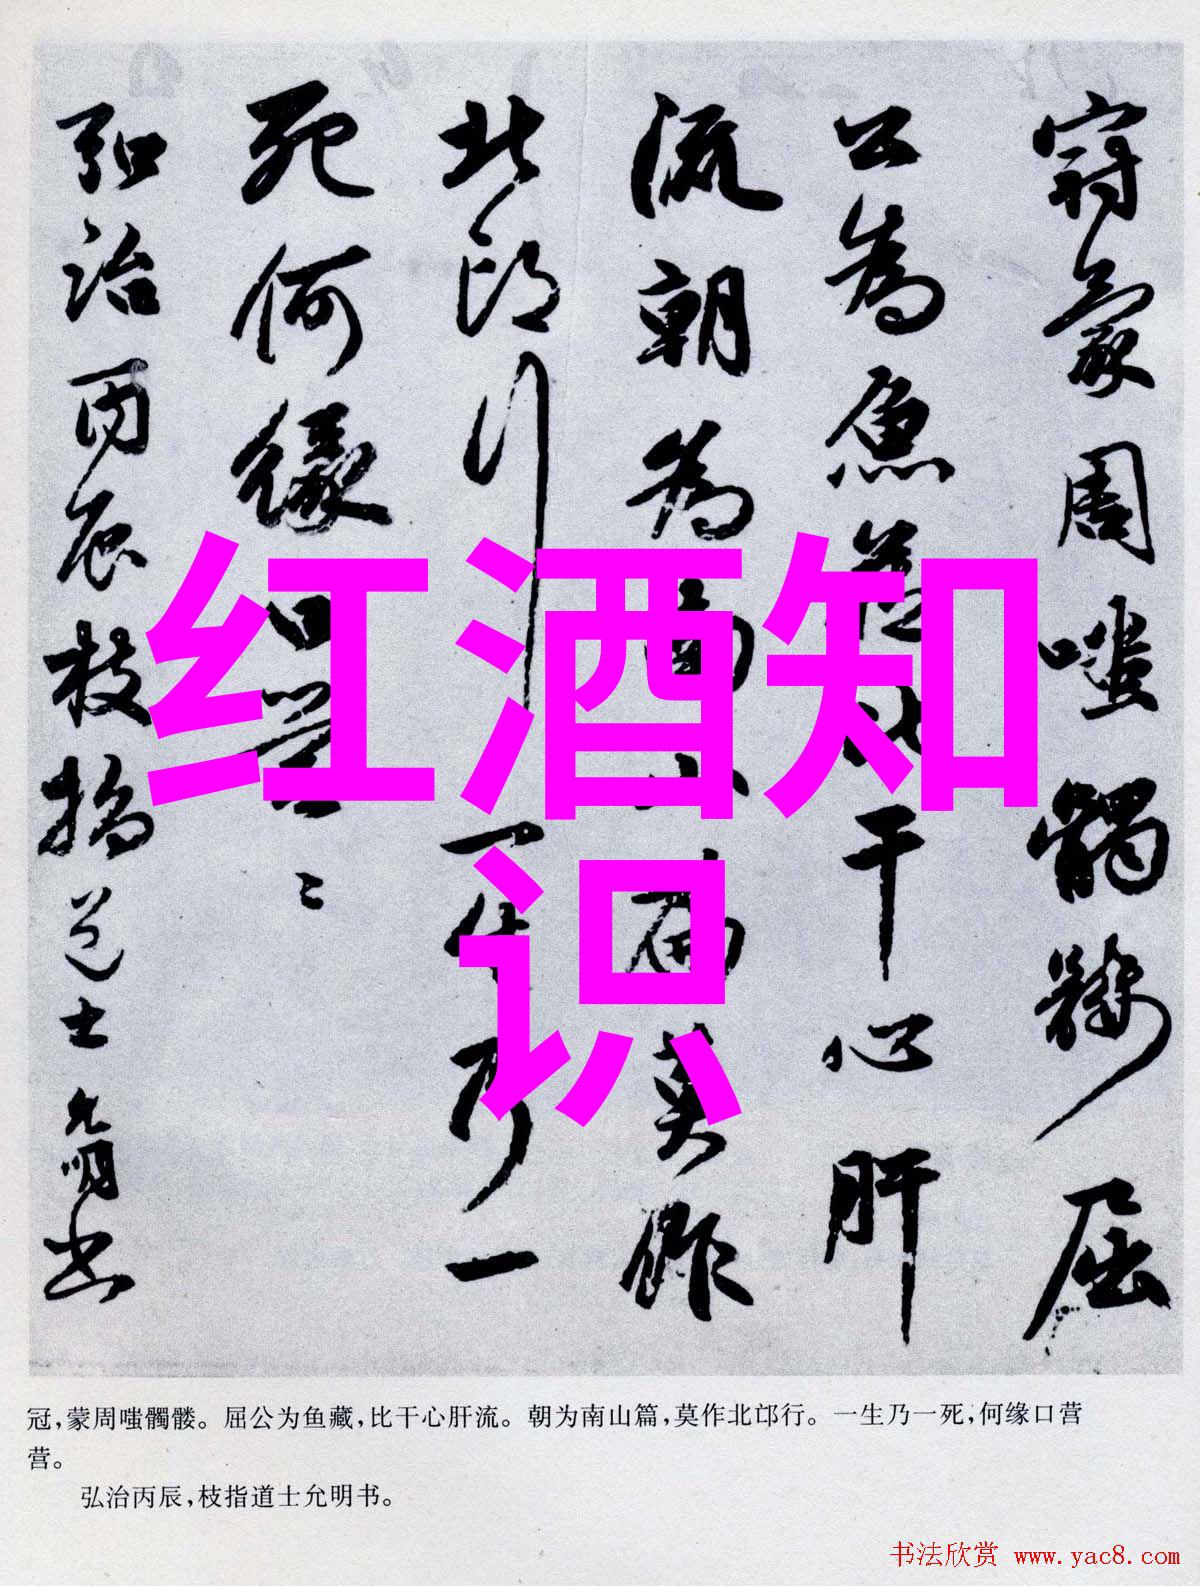 冠蒙周嗤髑髏屈
公為魚藏比干心肝
流朝為南山篇莫作
北邙行一生乃一
死何緣口營〻
弘治丙辰枝指道士允明書
红酒知
识
冠,蒙周嗤髑髅。屈公为鱼藏,比干心肝流。朝为南山篇,莫作北邙行。一生乃一死,何缘口营
营。
弘治丙辰,枝指道士允明书。
书法欣赏 www.yac8.com